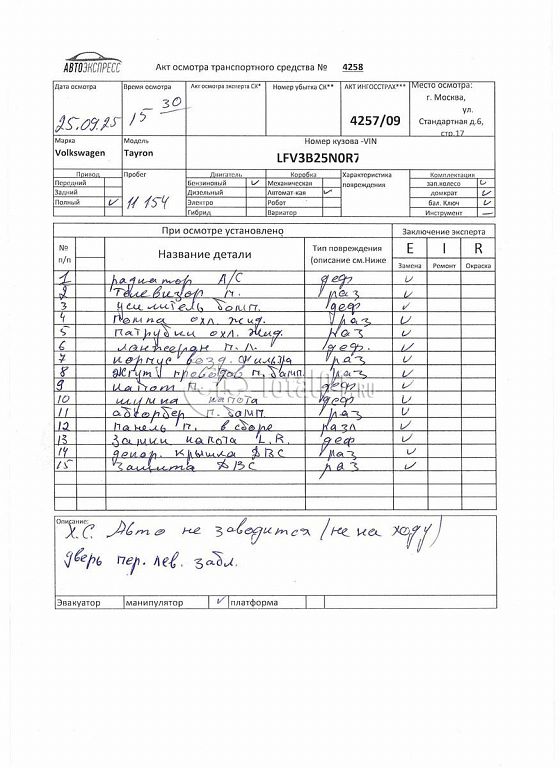 АВТОЭКСПРЕСС
Акт осмотра транспортного средства № 4258
Дата осмотра Время осмотра Акт осмотра эксперта СК* Номер убытка СК** АКТ ИНГОССТРАХ*** Место осмотра:
25.09.25 15 30 4257/09 г. Москва,
ул.
Стандартная д.6,
стр.17
Марка Модель Номер кузова -VIN
Volkswagen Tayron LFV3B25N0R7
Привод Пробег Двигатель Коробка Характеристика повреждения Комплектация
Передний Бензиновый ✓ Механическая зап.колесо ✓
Задний Дизельный Автомат-кая ✓ домкрат ✓
Полный ✓ 11 154 Электро Робот бал. Ключ ✓
Гибрид Вариатор Инструмент —
При осмотре установлено Заключение эксперта
№ п/п Название детали Тип повреждения (описание см.Ниже E I R
Замена Ремонт Окраска
1 радиатор А/С деф ✓
2 телевизор п. раз ✓
3 усилитель бамп. деф ✓
4 помпа охл. жид. раз ✓
5 патрубки охл. жид. раз ✓
6 лонжерон п. л. деф. ✓
7 корпус возд. фильтра раз ✓
8 Жгут проводов п. бамп. раз ✓
9 капот п. деф ✓
10 шумка капота деф ✓
11 абсорбер п. бамп. раз ✓
12 панель п. в сборе разл ✓
13 Замки капота L.R. деф ✓
14 декор. крышка ДВС раз ✓
15 Защита ДВС раз ✓
Описание:
Х.С. Авто не заводится (не на ходу)
дверь пер. лев. забл.
Эвакуатор манипулятор ✓ платформа